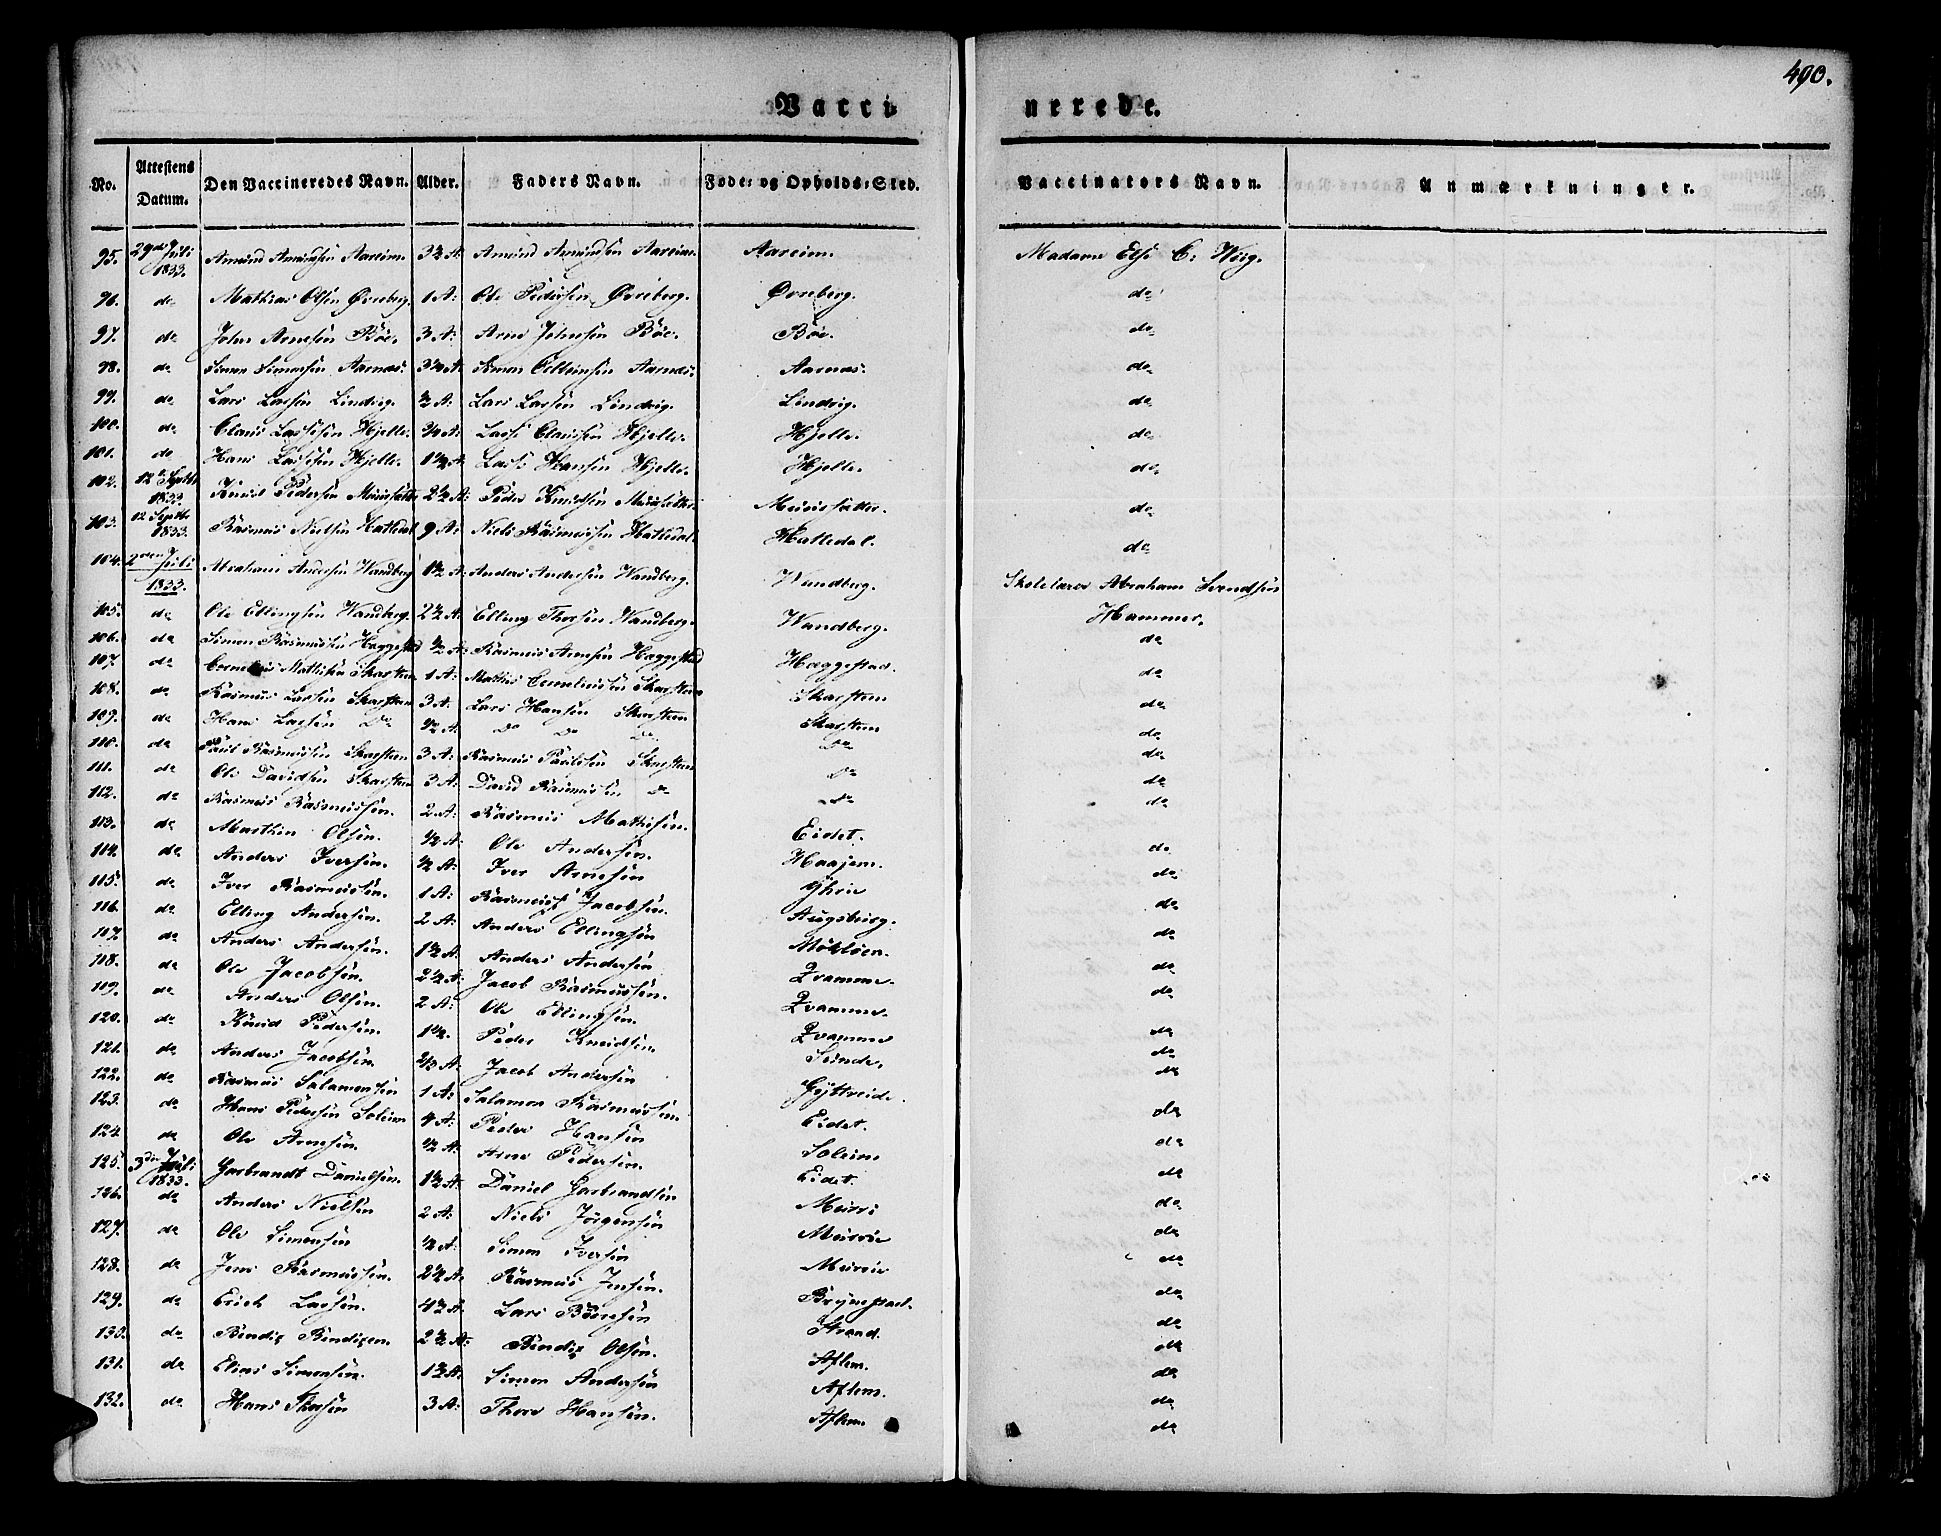 490.
Vaccinerede.
No. Attestens Datum. Den Vaccineredes Navn. Alder. Faders Navn. Føde- og Opholds-Sted. Vaccinators Navn. Anmærkninger.
95. 29de Juli 1833. Amund Amundsen Aareim. 3½ A: Amund Amundsen Aareim. Aareim. Madame Else C: Wiig.
96. do Mathias Olsen Øvreberg. 1 A: Ole Pedersen Øvreberg. Øvreberg. do
97. do John Arnesen Bőe. 3 A: Arne Johnsen Bőe. Bőe. do
98. do Simon Simonsen Aarnæs. 3½ A: Simon Aarnæs. Aarnæs. do
99. do Lars Larsen Lindvig. ½ A: Lars Larsen Lindvig. Lindvig. do
100. do Claus Lassesen Hjelle. ¾ A: Lasse Clausen Hjelle. Hjelle. do
101. do Hans Lassesen Hjelle. 1½ A: Lasse Hansen Hjelle. Hjelle. do
102. 12te Septbr 1833 Knud Pedersen 2½ A: Peder Knudsen do
103. 12 Septbr 1833. Rasmus Nielsen Hatledal 9 A: Niels Rasmussen Hatledal. Hatledal. do
104. 2den Juli 1833. Abraham Andersen Wandberg 1½ A: Anders Andersen Wandberg. Wandberg. Skolelærer Abraham Svendsen Hammer.
105. do Ole Ellingsen Wandberg. 2½ A: Elling Thorsen Wandberg. Wandberg. do
106. do Simon Rasmussen Heggestad ½ A: Rasmus Arnesen Heggestad Heggestad. do
107. do Cornelius Mathisen Skarsten 1 A: Mathis Corneliussen Skarsten Skarsten do
108. do Rasmus Larsen Skarsten 3 A. Lars Hansen Skarsten Skarsten do
109. do Hans Larsen Do ½ A. Do Do Do Do do
110. do Paul Rasmussen Skarsten 3 A: Rasmus Paulsen Skarsten Do do
111. do Ole Davidsen Skarsten 3 A: David Rasmussen Do Do do
112. do Rasmus Rasmussen. 2 A: Rasmus Mathisen. Eidet. do
113. do Marthin Olsen. ½ A: Ole Andersen. Haajem. do
114. do Anders Iversen. ½ A: Iver Arnesen Yhrie do
115. do Iver Rasmussen. 1 A: Rasmus Jacobsen. Augsburg. do
116. do Elling Andersen. 2 A: Anders Ellingsen do
117. do Anders Andersen. 1½ A: Anders Andersen Qvamme. do
118. do Ole Jacobsen. 2½ A: Jacob Rasmussen. Qvamme. do
119. do Anders Olsen. 2 A: Ole Ellingsen. Qvamme do
120. do Knud Pedersen. 1½. Peder Knudsen. Sünde. do
121. do Anders Jacobsen. ⅔ A: Jacob Andersen do
122. do Rasmus Salamonsen 1 A: Salamon Rasmussen. Eidet. do
123. do Hans Pedersen Soleim 4 A: Peder Hansen Soleim do
124. do Ole Arnesen. ½ A: Arne Pedersen. Eidet. do
125. 3die Juli 1833. Garbrandt Danielsen. 1½ A: Daniel Garbrandsen Murri do
126. do Anders Nielsen 2 A: Niels Jörgensen Murrie do
127. do Ole Simonsen ½ A: Simon Iversen Murrie do
128. do Jens Rasmussen. 2½ A: Rasmus Jensen. Brynestad. do
129. do Erich Larsen. 4½ A: Lars Strand. do
130. do Bendix Bendixen. 2½ A: Bendix Olsen. Aflem. do
131. do Elias Simonsen. 1½ A: Simon Andersen Aflem. do
132. do Hans Thorsen 3 A: Thore Hansen. Aflem. do